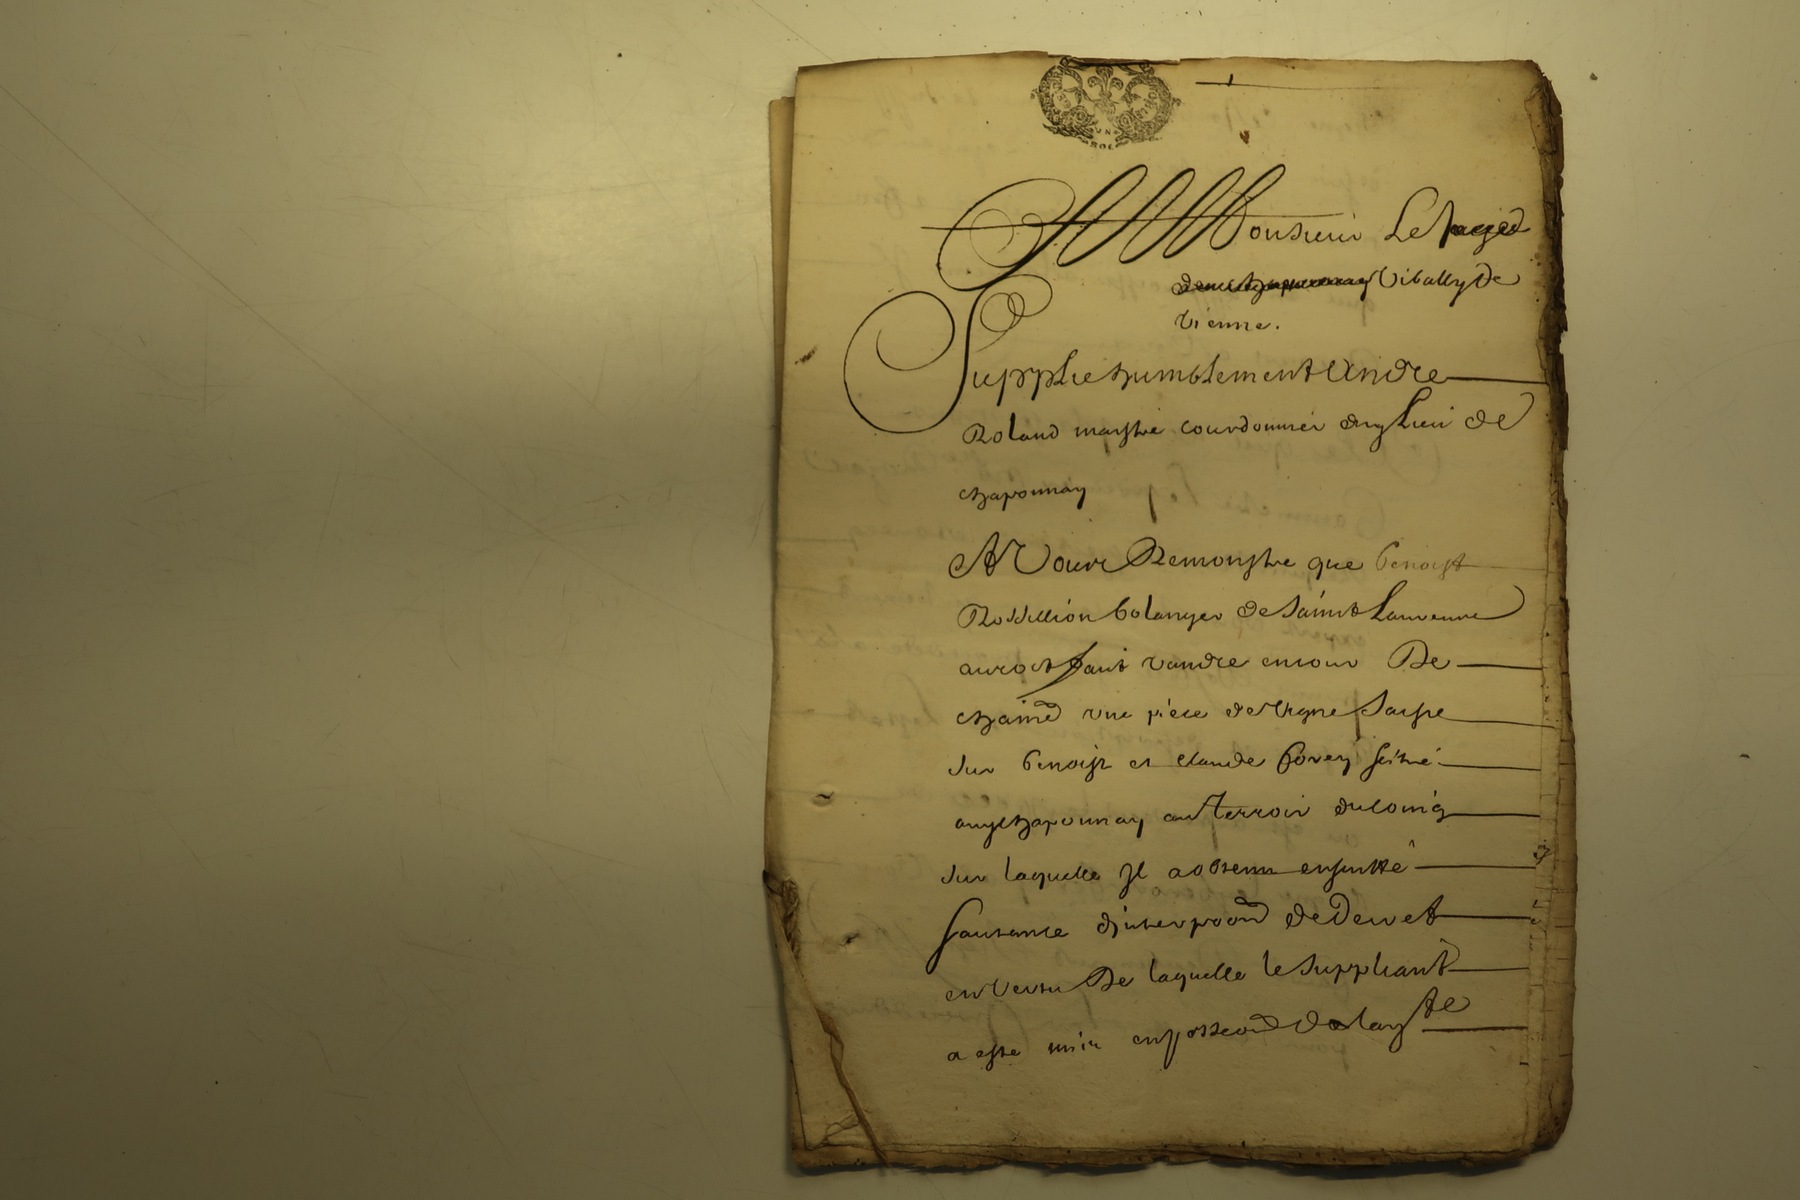 UN SOL
A Monsieur Le
Vibally De
vienne.
Supplie humblement Andre
Roland maystre courdonnier du lieu de
chaponnay
A Vous Remonstre que benoist
Rossillion bolanger de Saint Laurent
auroit fait vandre en cour De
vne piece de Vigne saisye
sur benoist et claude seitue
chaponnay au Terroir du
sur laquelle Jl a obtenu ensuitte
sautance d'interpoõn de Decret
en Vertu De laquelle le suppliant
a este mis en possõn De lad